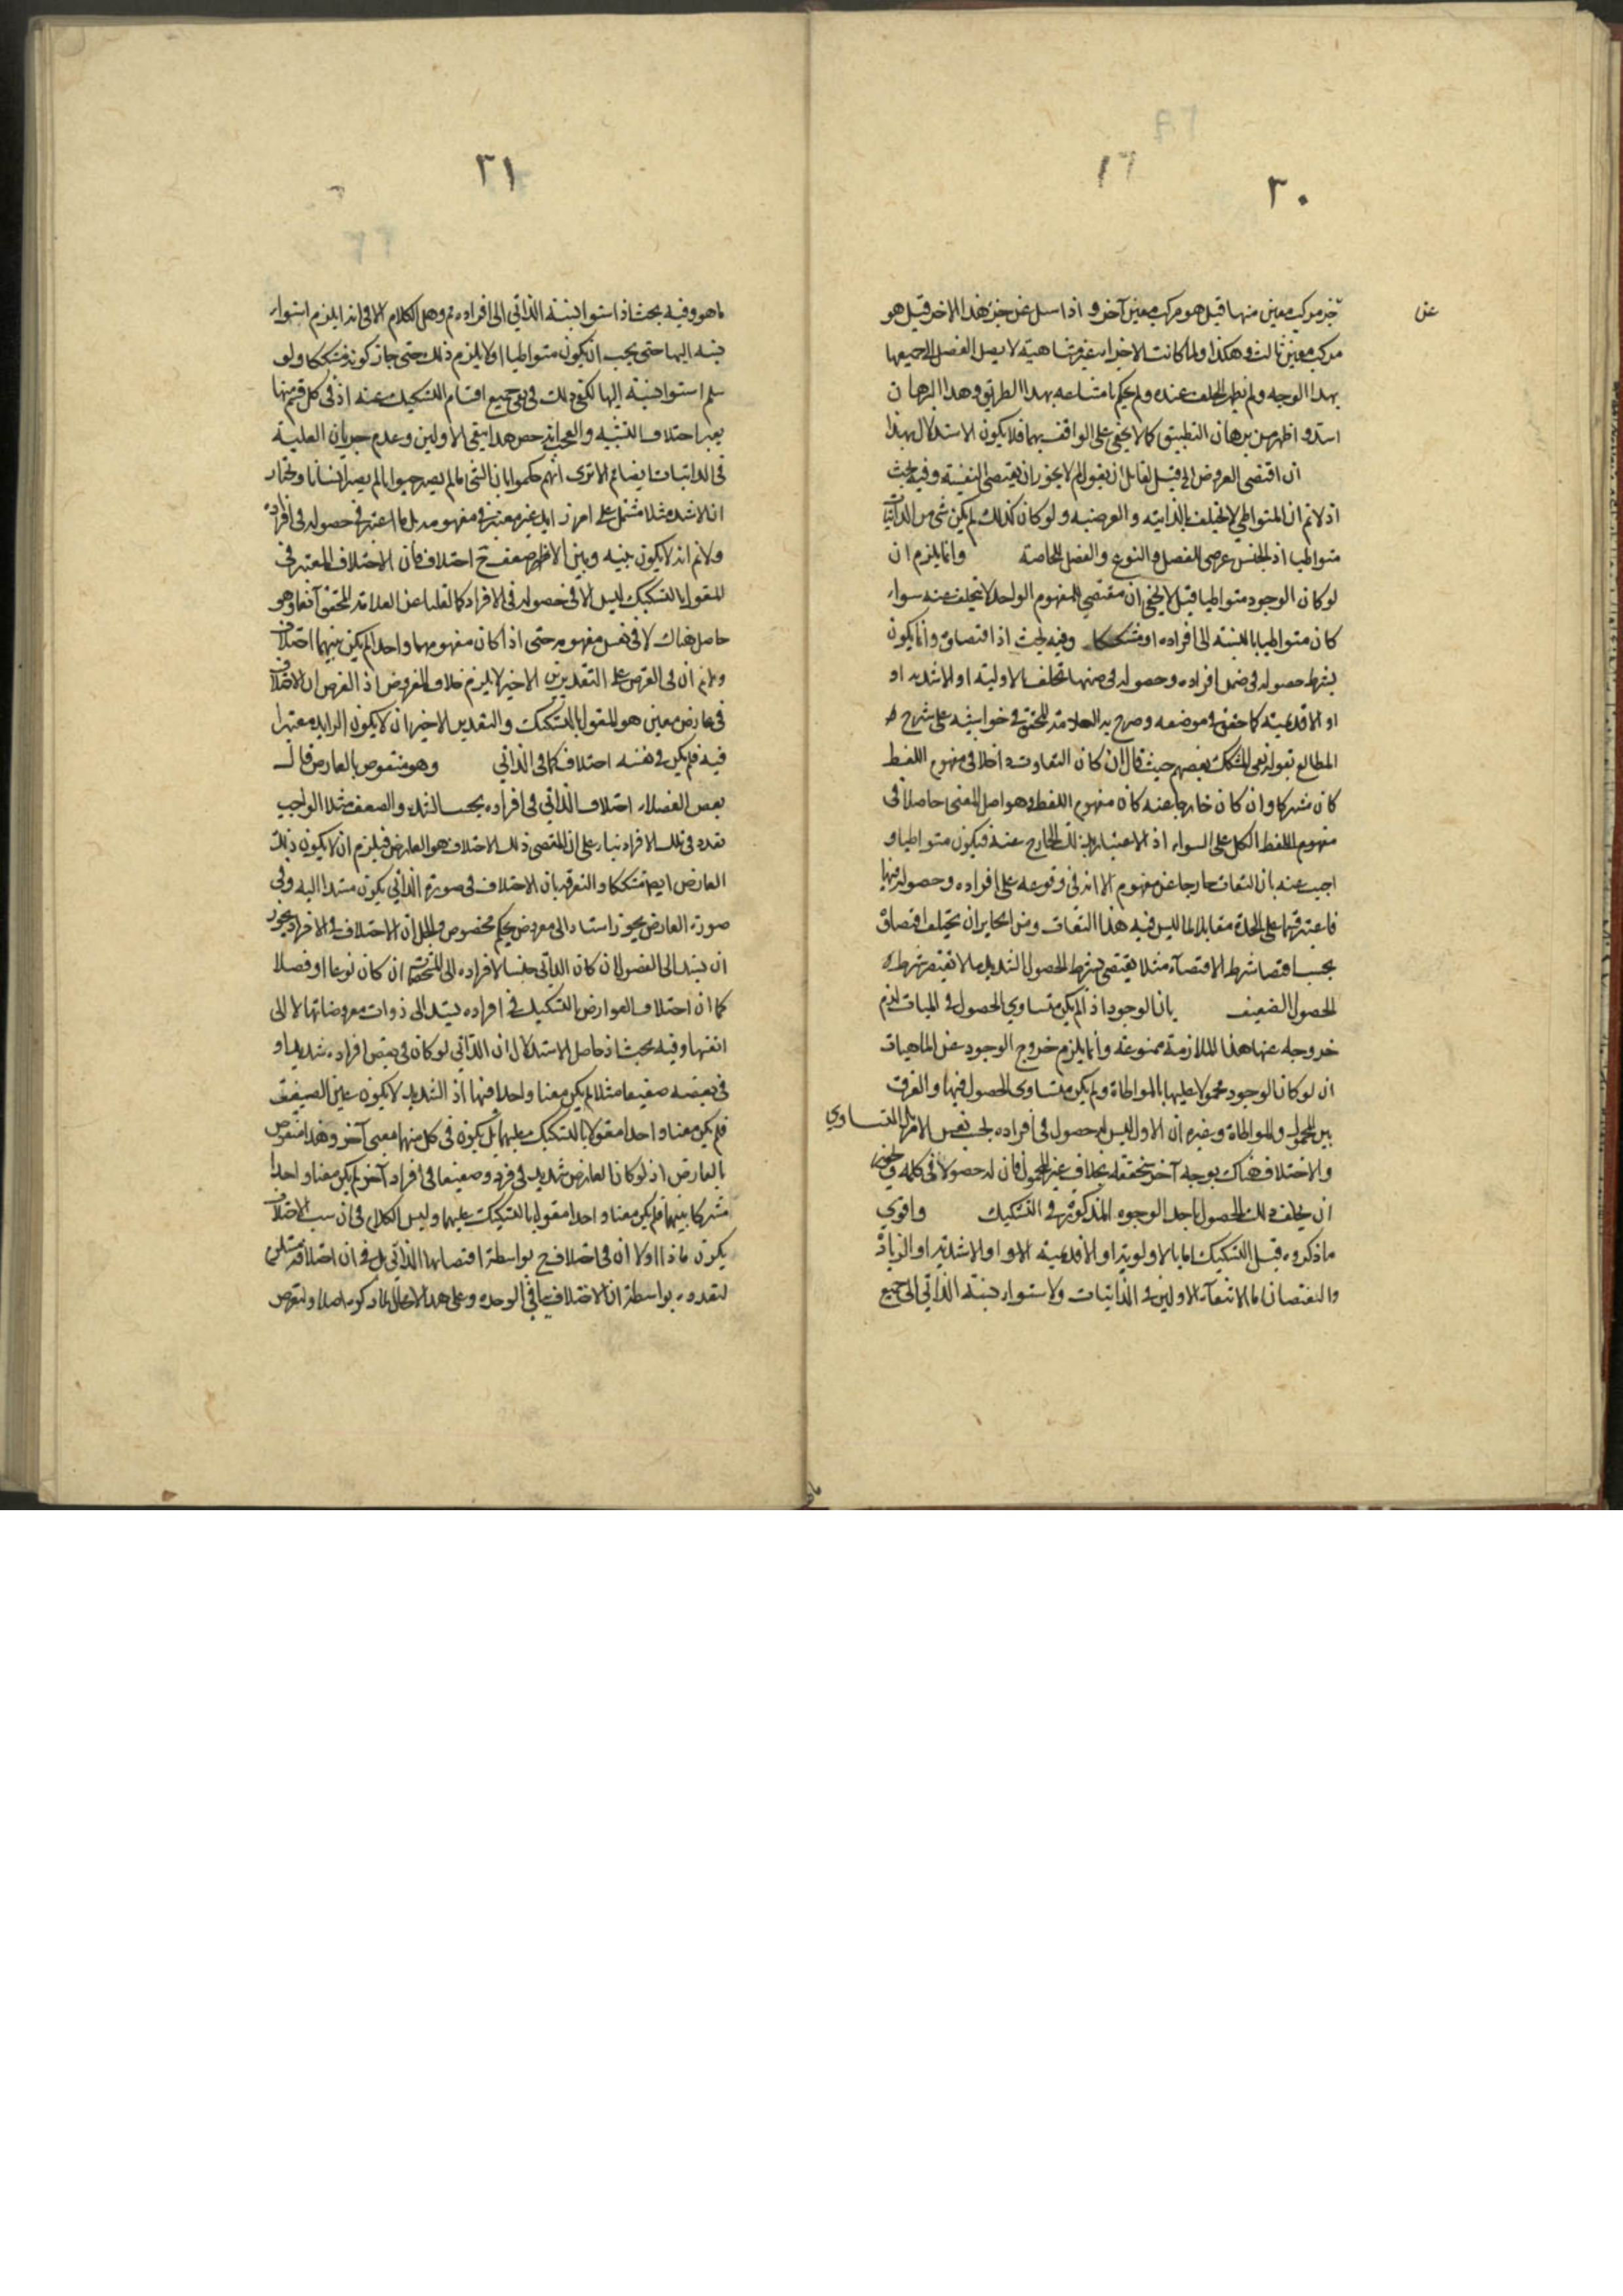 ٣٠
١٦
عن
جزء مركب معين منها قيل هو مركب معين آخر و اذا سئل عن جزء هذا الاخر قيل هو
مركب معين ثالث وهكذا ولما كانت الاجزاء غير متناهية لا يصل الفصل الى جميعها
بهذا الوجه ولم يظهر الخلف عنده ولم يحكم بامتناعه بهذا الطريق وهذا البرهان
اسد و اظهر من برهان التطبيق كما لا يخفى على الواقف بهما فلا يكون الاستدلال بهذا
ان اقتضى العروض الى قيل لقائل ان يقول لم لا يجوز ان يقتضى وفيه بحث
اذ لانم ان المتواطي لا يختلف بالذاتية والعرضية ولو كان كذلك لم يكن شئ من الذاتيات
متواطيا اذ الجنس عرضي للفصل والنوع والفصل للخاصة وانما يلزم ان
لو كان الوجود متواطيا قيل لا يخفى ان مقتضى المفهوم الواحد لا يتخلف عنه سواء
كان متواطيا بالنسبة الى افراده او مشككا وفيه بحث اذ اقتضاؤه وانما يكون
بشرط حصوله في ضمن افراده وحصوله في ضمنها تخلف بالاولية او الاشدية او
او الاقدمية كما حقق في موضعه وصرح به العلامة المحقق في حواشيه على شرح
المطالع بقوله نفى المشكك بعضهم حيث قال ان كان التفاوت داخلا في مفهوم اللفظ
كان مشتركا وان كان خارجا عنه كان مفهوم اللفظ وهو اصل المعنى حاصلا في
مفهوم اللفظ الكل على السواء اذ لا اعتبار بذلك الخارج عنه فيكون متواطيا و
اجيب عنه بان التفاوت خارجا عن مفهوم الا انه في وقوعه على افراده وحصوله فيها
فاعتبر قسما على الحدة مقابلا لما ليس فيه هذا التفاوت ومن الجايز ان يختلف اقتضاؤه
بحسب اقتضاء شرط الاقتضاء مثلا يقتضى بشرط الحصول الشديد ما لا يقتضيه بشرط
الحصول الضعيف بان الوجود اذ الم يكن متساوي الحصول في الماهيات لزم
خروجه عنها هذا الملازمة ممنوعة وانما يلزم خروج الوجود عن الماهيات
ان لو كان الوجود محمولا عليها بالمواطاة ولم يكن متساوي الحصول فيها والفرق
بين المحمول والمواطاة وغيره ان الاول ليس له حصول في افراده بحسب نفس الامر التساوي
والاختلاف هناك بوجه آخر تحققه بخلاف غير المحمول فان له حصولا في كله ويجوز
ان يختلف ذلك الحصول باحد الوجوه المذكورة في التشكيك واقوي
ما ذكروه قيل التشكيك اما بالاولوية او الاقدمية او الاشدية او الزيادة
والنقصان اما لانتفاء الاولين في الذاتيات ولاستواء نسبة الذاتي الى جميع
٣١
ما هو وفيه بحث اذ استواء نسبة الذاتي الى افراده مم وهل الكلام الا في انه يلزم استواء
نسبه اليها حتى يجب ان يكون متواطيا او لا يلزم ذلك حتى جاز كونه مشككا ولو
سلم استواء نسبته اليها لكفى ذلك في نفى جميع اقسام التشكيك عنه اذ في كل قسم منها
يعتبر اختلاف النسبة والعجب انه خص هذا بنفى الاولين وعدم جريان العلية
في الذاتيات ايضا مم الا ترى انهم حكموا بان الشئ ما لم يصر حيوانا لم يصر انسانا ونختار
ان الاشد مثلا مشتمل على امر زايد غير معتبر في مفهومه بل ما اعتبر في حصوله في افراده
ولانم انه لا يكون بينه وبين الاضعف ح اختلاف فان الاختلاف المعتبر في
المقول بالتشكيك ليس الا في حصوله في الافراد كما نقلنا عن العلامة المحقق آنفا وهو
حاصل هناك لا في نفس مفهومه حتى اذا كان مفهومهما واحدا لم يكن بينهما اختلاف
ولانم ان في الفرض على التقديرين الاخير لا يلزم خلاف المفروض اذ الفرض ان الاختلاف
في عارض معين هو المقول بالتشكيك والتقدير الاخير ان لا يكون الزايد معتبرا
فيه فلم يكن في نفسه اختلاف كما في الذاتي وهو منقوض بالعارض قال
بعض الفضلاء اختلاف الذاتي في افراده بحسب الشدة والضعف مثلا لو اوجب
تعدده في تلك الافراد بناء على ان المقتضى ذلك الاختلاف هو العارض فيلزم ان لا يكون ذلك
العارض ايضا مشككا والتفرقة بان الاختلاف في صورة الذاتي يكون مستندا اليه وفي
صورة العارض يجوز استناده الى معروض بحكم مخصوص والحل ان الاختلاف في الافراد يجوز
ان يستند الى الفصول ان كان الذاتي جنسا لافراده الى المشخصات ان كان نوعا او فصلا
كما ان اختلاف العوارض بالتشكيك في افراده يستند الى ذوات معروضاتها لا الى
انفسها وفيه بحث اذ حاصل الاستدلال ان الذاتي لو كان في بعض افراده شديدا و
في بعضه ضعيفا مثلا لم يكن معنا واحدا فيها اذ الشديد لا يكون عين الضعيف
فلم يكن معنا واحدا مقولا بالتشكيك عليهما بل يكون في كل منهما معنى آخر وهذا منقوض
بالعارض اذ لو كان العارض شديد في فرد وضعيفا في افراد آخر لم يكن معنا واحدا
مشتركا بينهما فلم يكن معنا واحدا مقولا بالتشكيك عليهما وليس الكلام في ان سبب الاختلاف
يكون ماذا اولا ان في اختلافه ح بواسطة اقتضائها الذاتي بل في ان اختلافه مستلزم
لتعدده بواسطة ان الاختلاف ينافى الوحدة وعلى هذا لا الحل المذكور اصلا